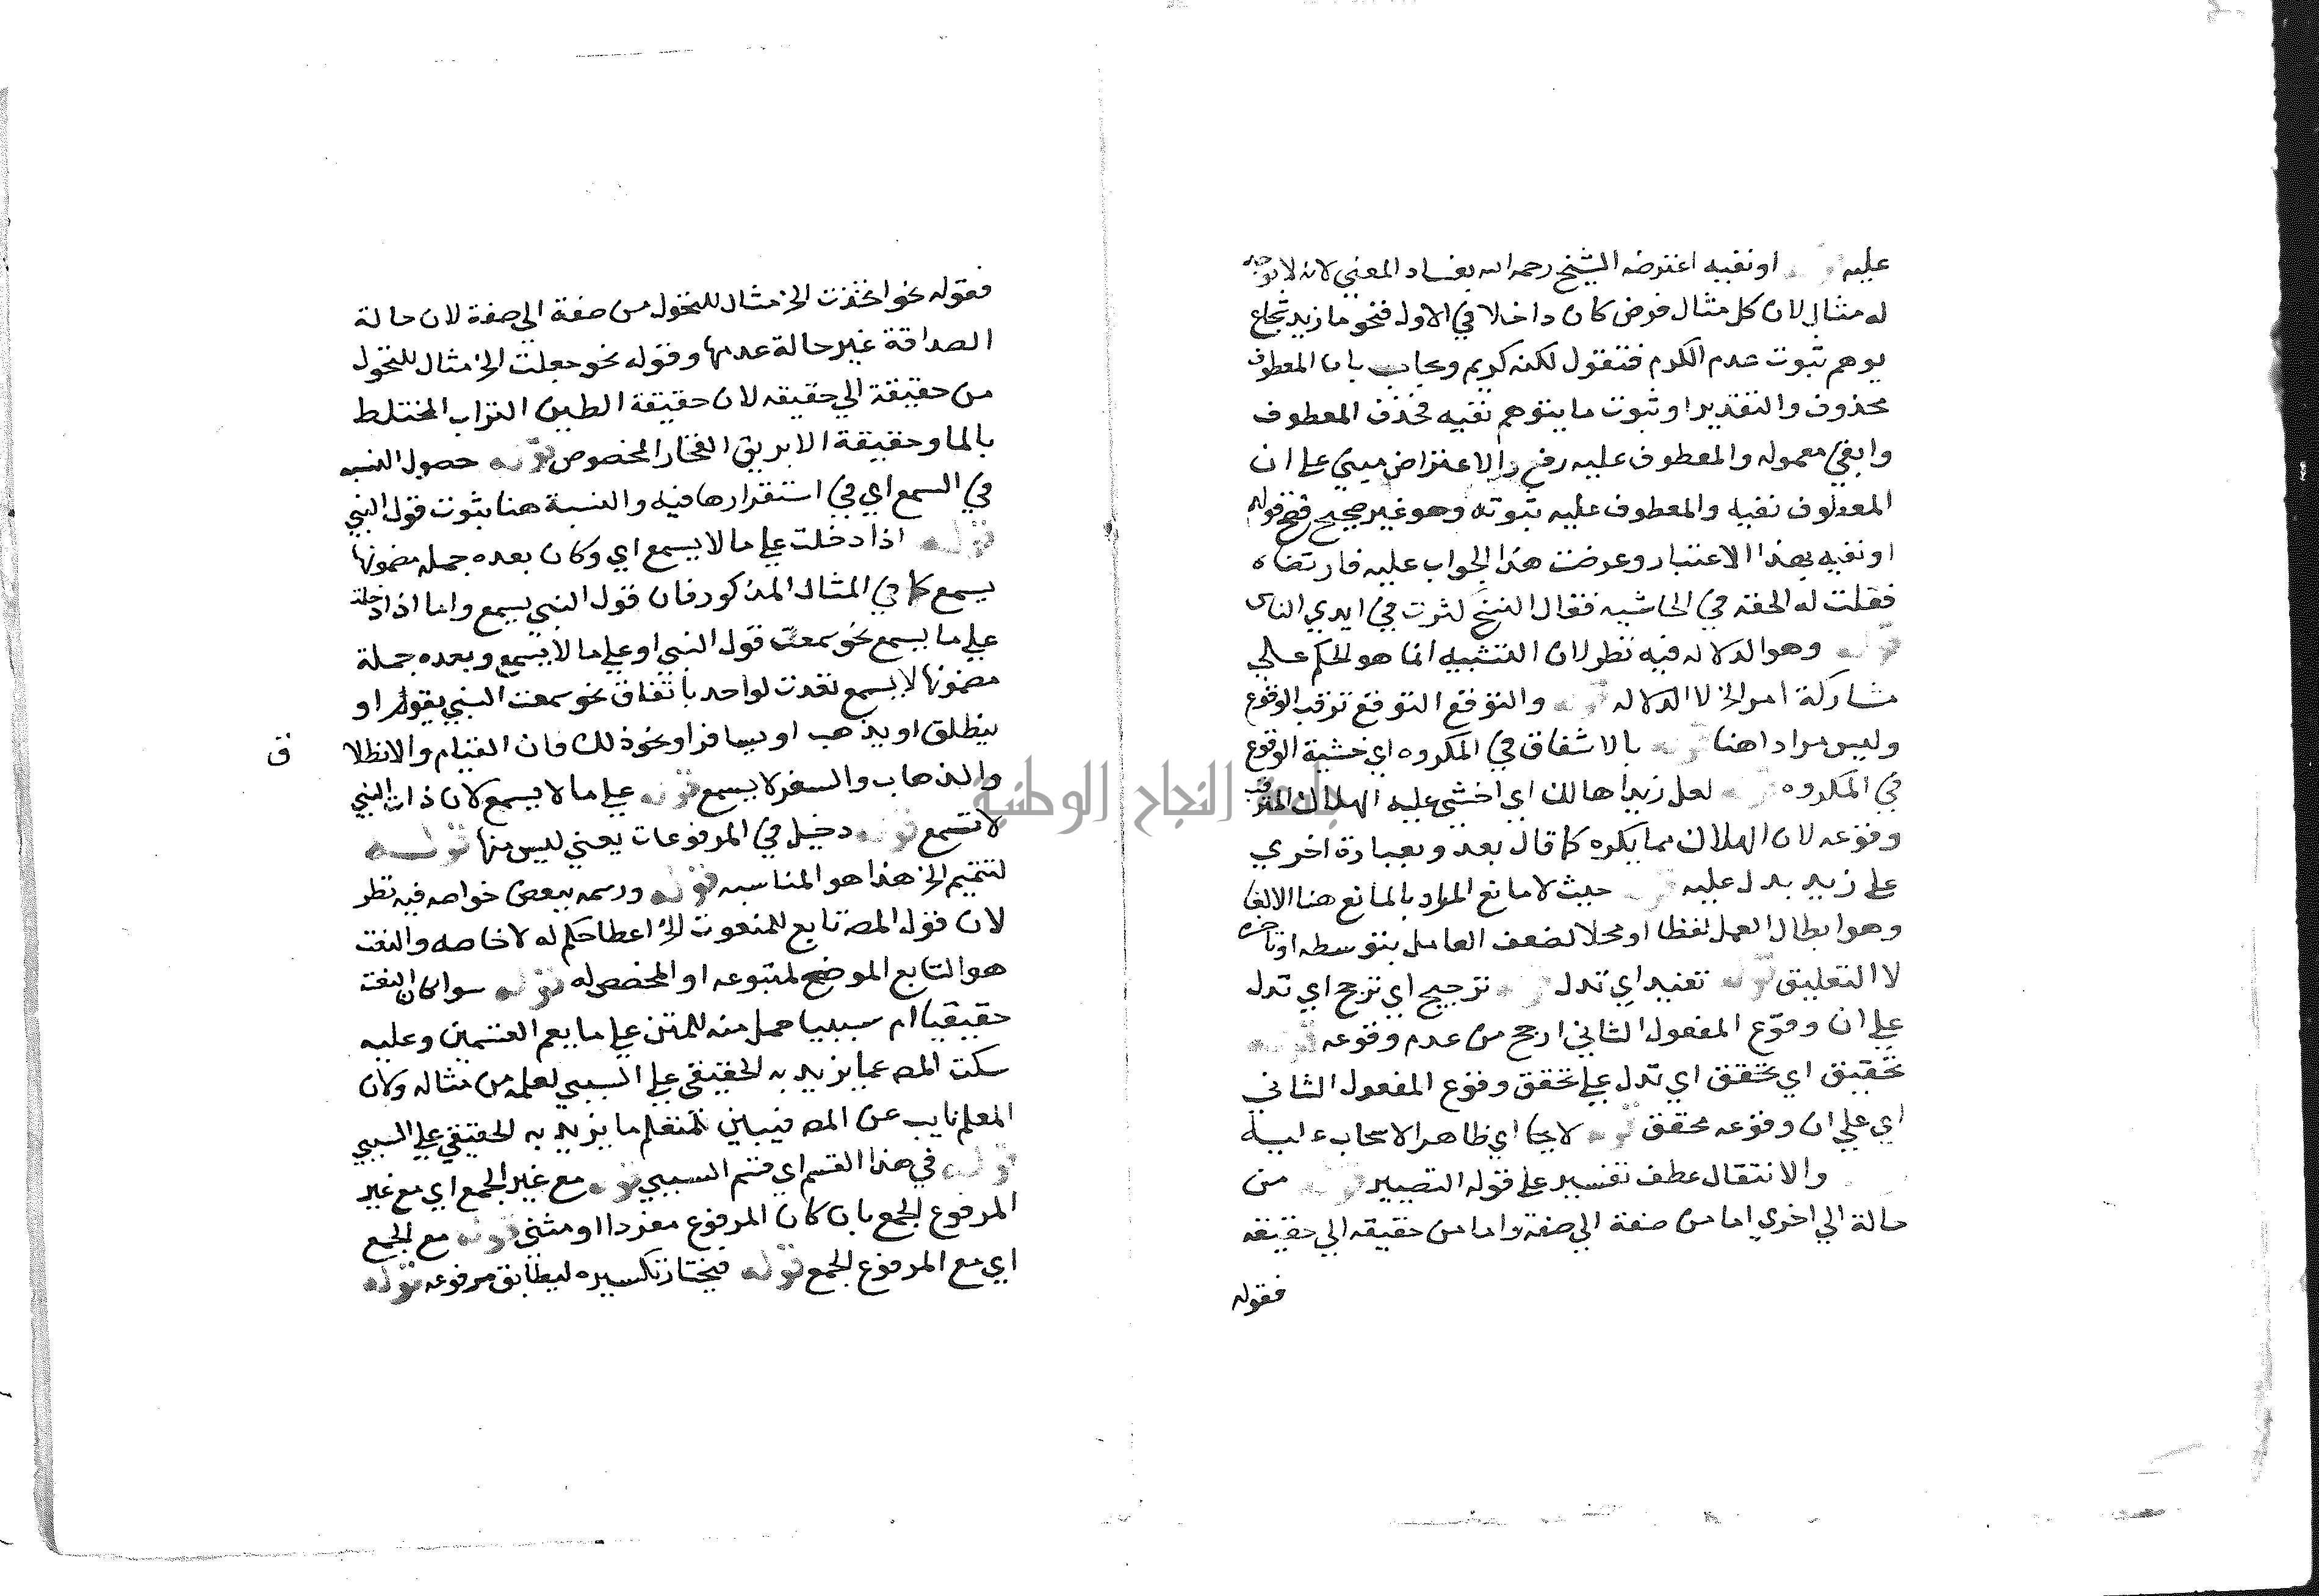 عليه قوله او نفيه اعترضه الشيخ رحمه الله بفساد المعني لانه لا يوجد
له مثال لان كل مثال فرض كان داخلا في الاول فنحو ما زيد شجاع
يوهم ثبوت عدم الكرم فتقول لكنه كريم ويجاب بان المعطوف
محذوف والتقدير او ثبوت ما يتوهم نفيه فحذف المعطوف
وابقي معموله والمعطوف عليه رفع والاعتراض مبني علي ان
المعطوف نفيه والمعطوف عليه ثبوته وهو غير صحيح فصح قوله
او نفيه بهذا الاعتبار وعرضت هذا الجواب عليه فارتضاه
فقلت له الحقه في الحاشيه فقال النسخ كثرت في ايدي الناس
قوله وهو الدلاله فيه نظر لان التشبيه انما هو الحكم علي
مشاركة امر الخ لا الدلاله قوله والتوقع التوقع ترقب الوقوع
وليس مرادا هنا قوله بالاشفاق في المكروه اي خشية الوقوع
في المكروه قوله لعل زيدا هالك اي اخشي عليه الهلاك المترقب
وقوعه لان الهلاك مما يكره كما قال بعد وبعبارة اخري
علي زيد يدل عليه قوله حيث لا مانع المراد بالمانع هنا الالغا
وهو ابطال العمل لفظا او محلا لضعف العامل بتوسطه او تاخره
لا التعليق قوله تفيد اي تدل قوله ترجيح اي ترجح اي تدل
علي ان وقوع المفعول الثاني ارجح من عدم وقوعه قوله
تحقيق اي تحقق اي تدل علي تحقق وقوع المفعول الثاني
اي علي ان وقوعه محقق قوله لابجا اي ظاهر الاصحاب
والانتقال عطف تفسير علي قوله التصيير قوله من
حالة الي اخري اما من صفة الي صفة واما من حقيقه الي حقيقه
فقوله
فقوله نحو اتخذت الخ مثال للتحول من صفة الي صفة لان حالة
الصداقة غير حالة عدمها وقوله نحو جعلت الخ مثال للتحول
من حقيقة الي حقيقه لان حقيقة الطين التراب المختلط
بالما وحقيقة الابريق الفخار المخصوص قوله حصول النسبه
في السمع اي في استقرارها فيه والنسبة هنا ثبوت قول النبي
قوله اذا دخلت علي ما لا يسمع اي وكان بعده جمله مضمونها
يسمع كما في المثال المذكور فان قول النبي يسمع واما اذا دخلت
علي ما يسمع نحو سمعت قول النبي او علي ما لا يسمع وبعده جملة
مضمونها لا يسمع تعدت لواحد باتفاق نحو سمعت النبي يقوم او
ينطلق او يذهب او يسافر او نحو ذلك فان القيام والانطلا
ق
والذهاب والسفر لا يسمع قوله علي ما لا يسمع لان ذات النبي
لا تسمع قوله دخيل في المرفوعات يعني ليس منها قوله
لتتميم الخ هذا هو المناسبه قوله ورسمه ببعض خواصه فيه نظر
لان قول المصـ تابع للمنعوت الخ اعطا حكم له لا خاصه والنعت
هو التابع الموضح لمتبوعه او المخصص له قوله سوا كان النعت
حقيقيا ام سببيا حمل منه للمتن علي ما يعم القسمين وعليه
سكت المصـ عما يزيد به الحقيقي علي السببي لعلمه من مثاله ولان
المعلم نايب عن المصـ فيبين للمتعلم ما يزيد به الحقيقي علي السببي
قوله في هذا القسم اي قسم السببي قوله مع غير الجمع اي مع غير
المرفوع الجمع بان كان المرفوع مفردا او مثني قوله مع الجمع
اي مع المرفوع الجمع قوله فيختار تكسيره ليطابق مرفوعه قوله
جامعة النجاح الوطنية